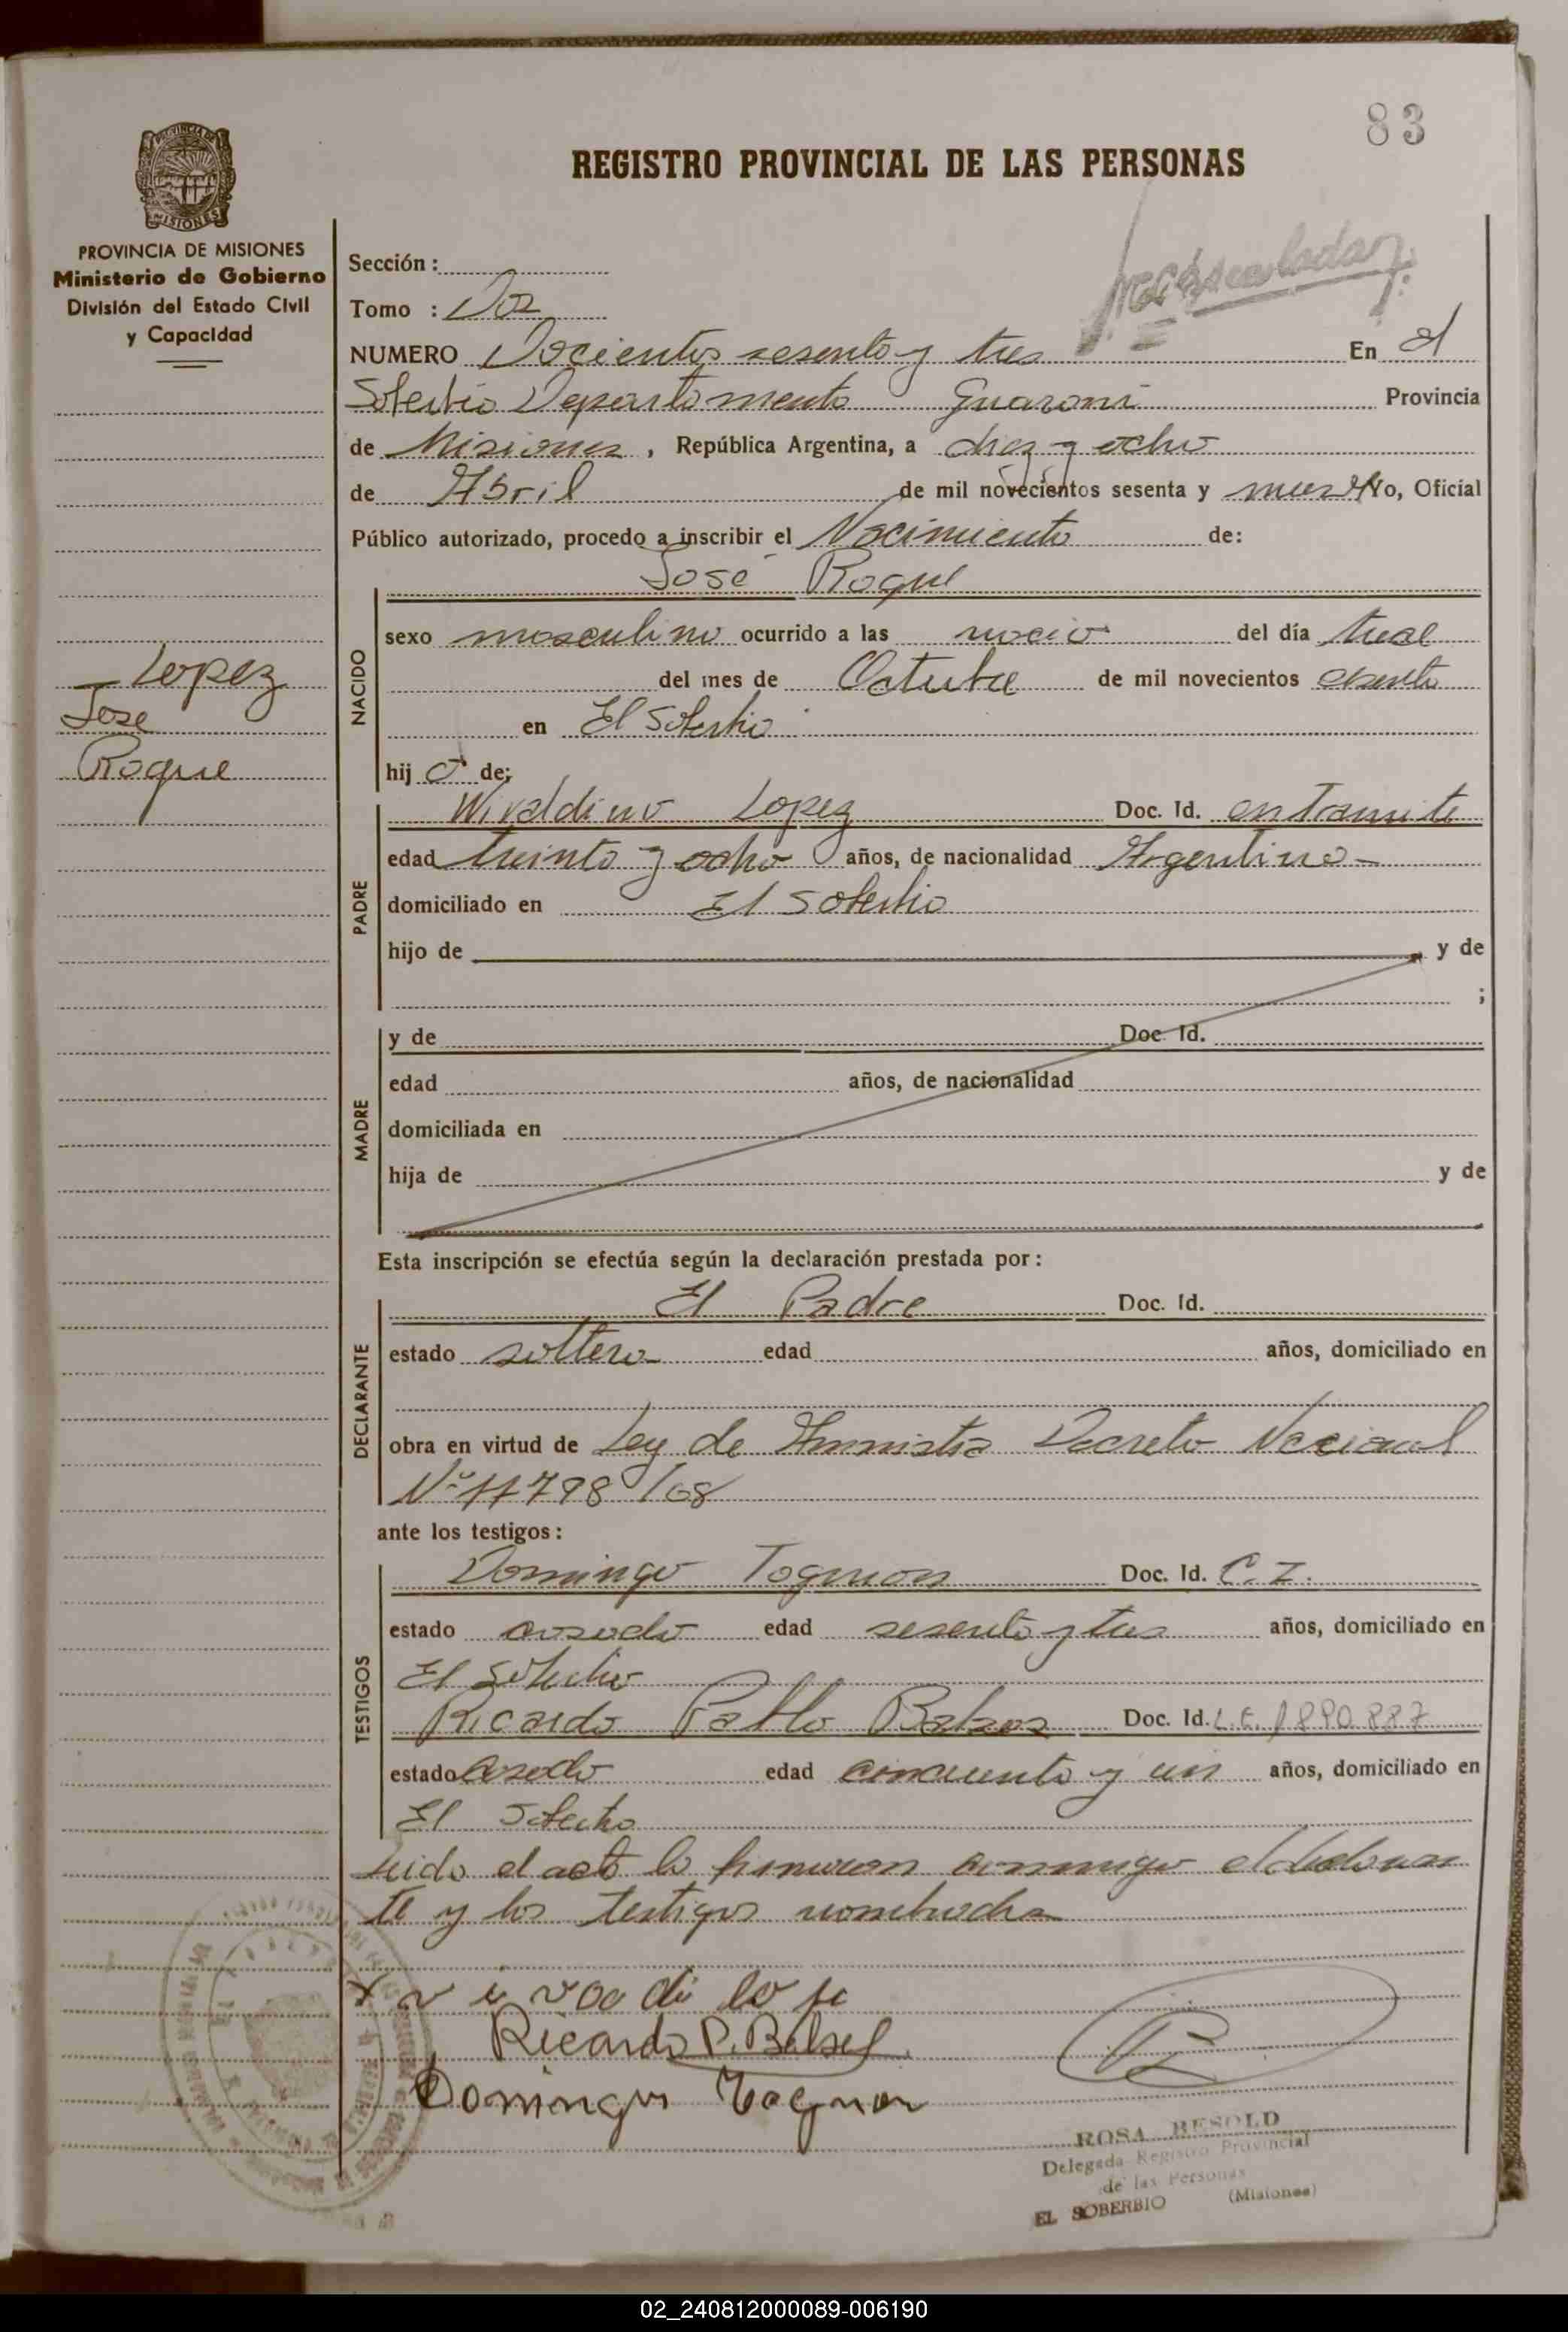 83
REGISTRO PROVINCIAL DE LAS PERSONAS
PROVINCIA DE MISIONES
Ministerio de Gobierno
División del Estado Civil
y Capacidad
Lopez
Jose
Roque
Sección :
Tomo : Dos
NUMERO Docientos sesenta y tres En el
Soberbio Departamento Guarani Provincia
de Misiones , República Argentina, a diez y ocho
de Abril de mil novecientos sesenta y nueve Yo, Oficial
Público autorizado, procedo a inscribir el Nacimiento de:
José Roque
NACIDO
sexo masculino ocurrido a las nacio del día trece
del mes de Octubre de mil novecientos
en El Soberbio
hij o de;
PADRE
Wivaldino Lopez Doc. Id. en Tramite
edad treinta y ocho años, de nacionalidad Argentino
domiciliado en El Soberbio
hijo de y de
;
MADRE
y de Doc. Id.
edad años, de nacionalidad
domiciliada en
hija de y de
Esta inscripción se efectúa según la declaración prestada por :
DECLARANTE
El Padre Doc. Id.
estado soltero edad años, domiciliado en
obra en virtud de Ley de Amnistia Decreto Nacional
Nº 17798/68
ante los testigos :
TESTIGOS
Domingo Tognon Doc. Id. C. I.
estado casado edad sesenta y tres años, domiciliado en
El Soberbio
Ricardo Pablo Doc. Id. L.E. 1890.887
estado casado edad cincuenta y un años, domiciliado en
El Soberbio
Leido el acta la firmaron conmigo el declaran
te y los testigos nombrados
Ricardo P. Balsel
Domingo Tognon
ROSA RESOLD
Delegada Registro Provincial
de las Personas
EL SOBERBIO (Misiones)
02_240812000089-006190